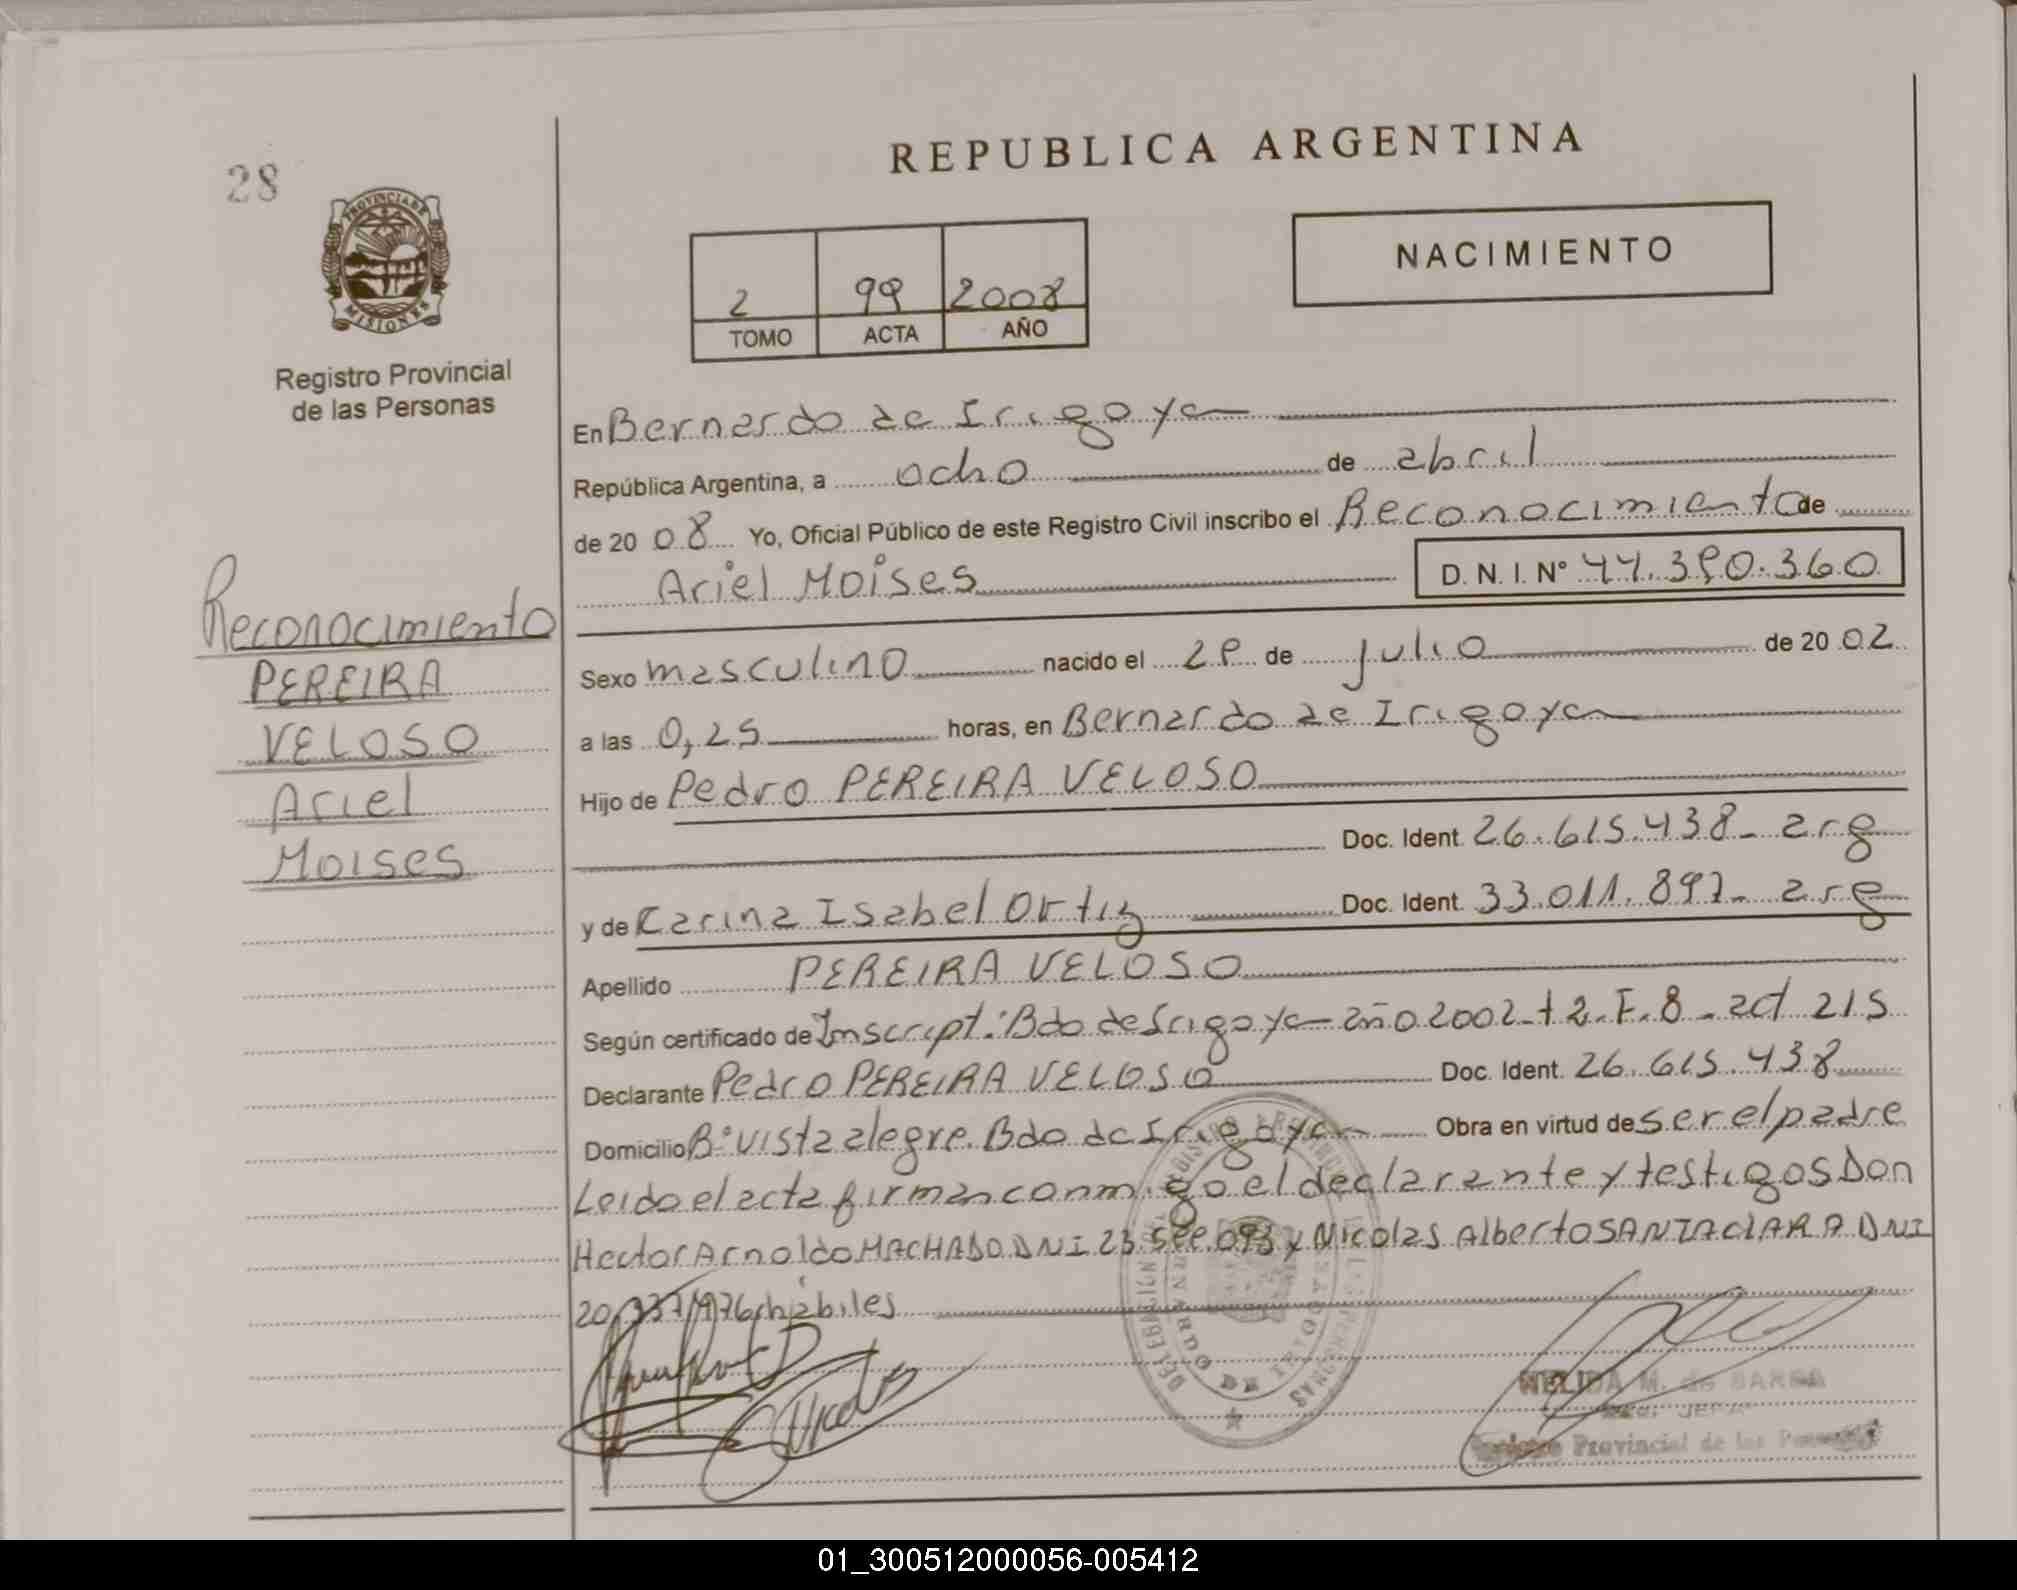 REPUBLICA ARGENTINA
28
PROVINCIA DE
MISIONES
NACIMIENTO
2 99 2008
TOMO ACTA AÑO
Registro Provincial
de las Personas
En Bernardo de Irigoyen
República Argentina, a ocho de abril
de 20 08 Yo, Oficial Público de este Registro Civil inscribo el Reconocimiento de
Ariel Moises D. N. I. Nº 44.390.360
Reconocimiento
PEREIRA
VELOSO
Ariel
Moises
Sexo masculino nacido el 29 de julio de 20 02
a las 0,25 horas, en Bernardo de Irigoyen
Hijo de Pedro PEREIRA VELOSO
Doc. Ident. 26.615.438- arg
y de Carina Isabel Ortiz Doc. Ident. 33.011.897- arg
Apellido PEREIRA VELOSO
Según certificado de Inscript.: Bdo de Irigoyen año 2002-t 2. F. 8 - act 215
Declarante Pedro PEREIRA VELOSO Doc. Ident. 26.615.438
Domicilio Bº vista alegre. Bdo de Irigoyen Obra en virtud de ser el padre
Leido el acta firman conmigo el declarante y testigos Don
Hector Arnoldo MACHADO DNI 23. 093 y Nicolas Alberto SANTACLARA DNI
20.337.976 habiles
NELIDA M. de BARBA
JEFA
Registro Provincial de las Personas
01_300512000056-005412